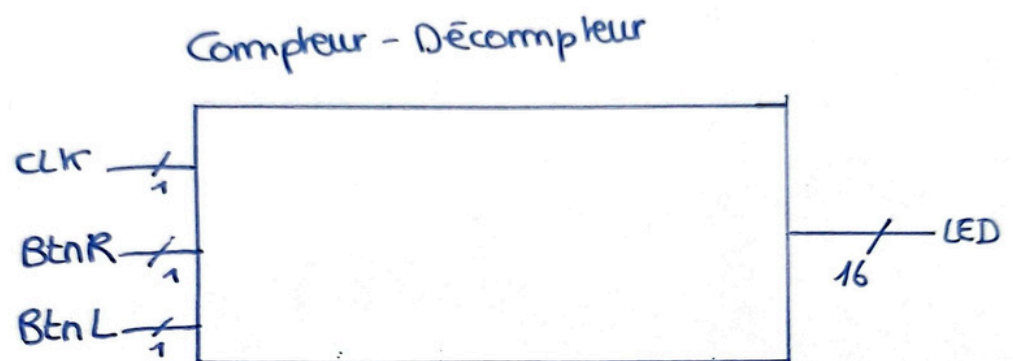 Compteur - Décompteur
CLK
1
BtnR
1
BtnL
1
LED
16